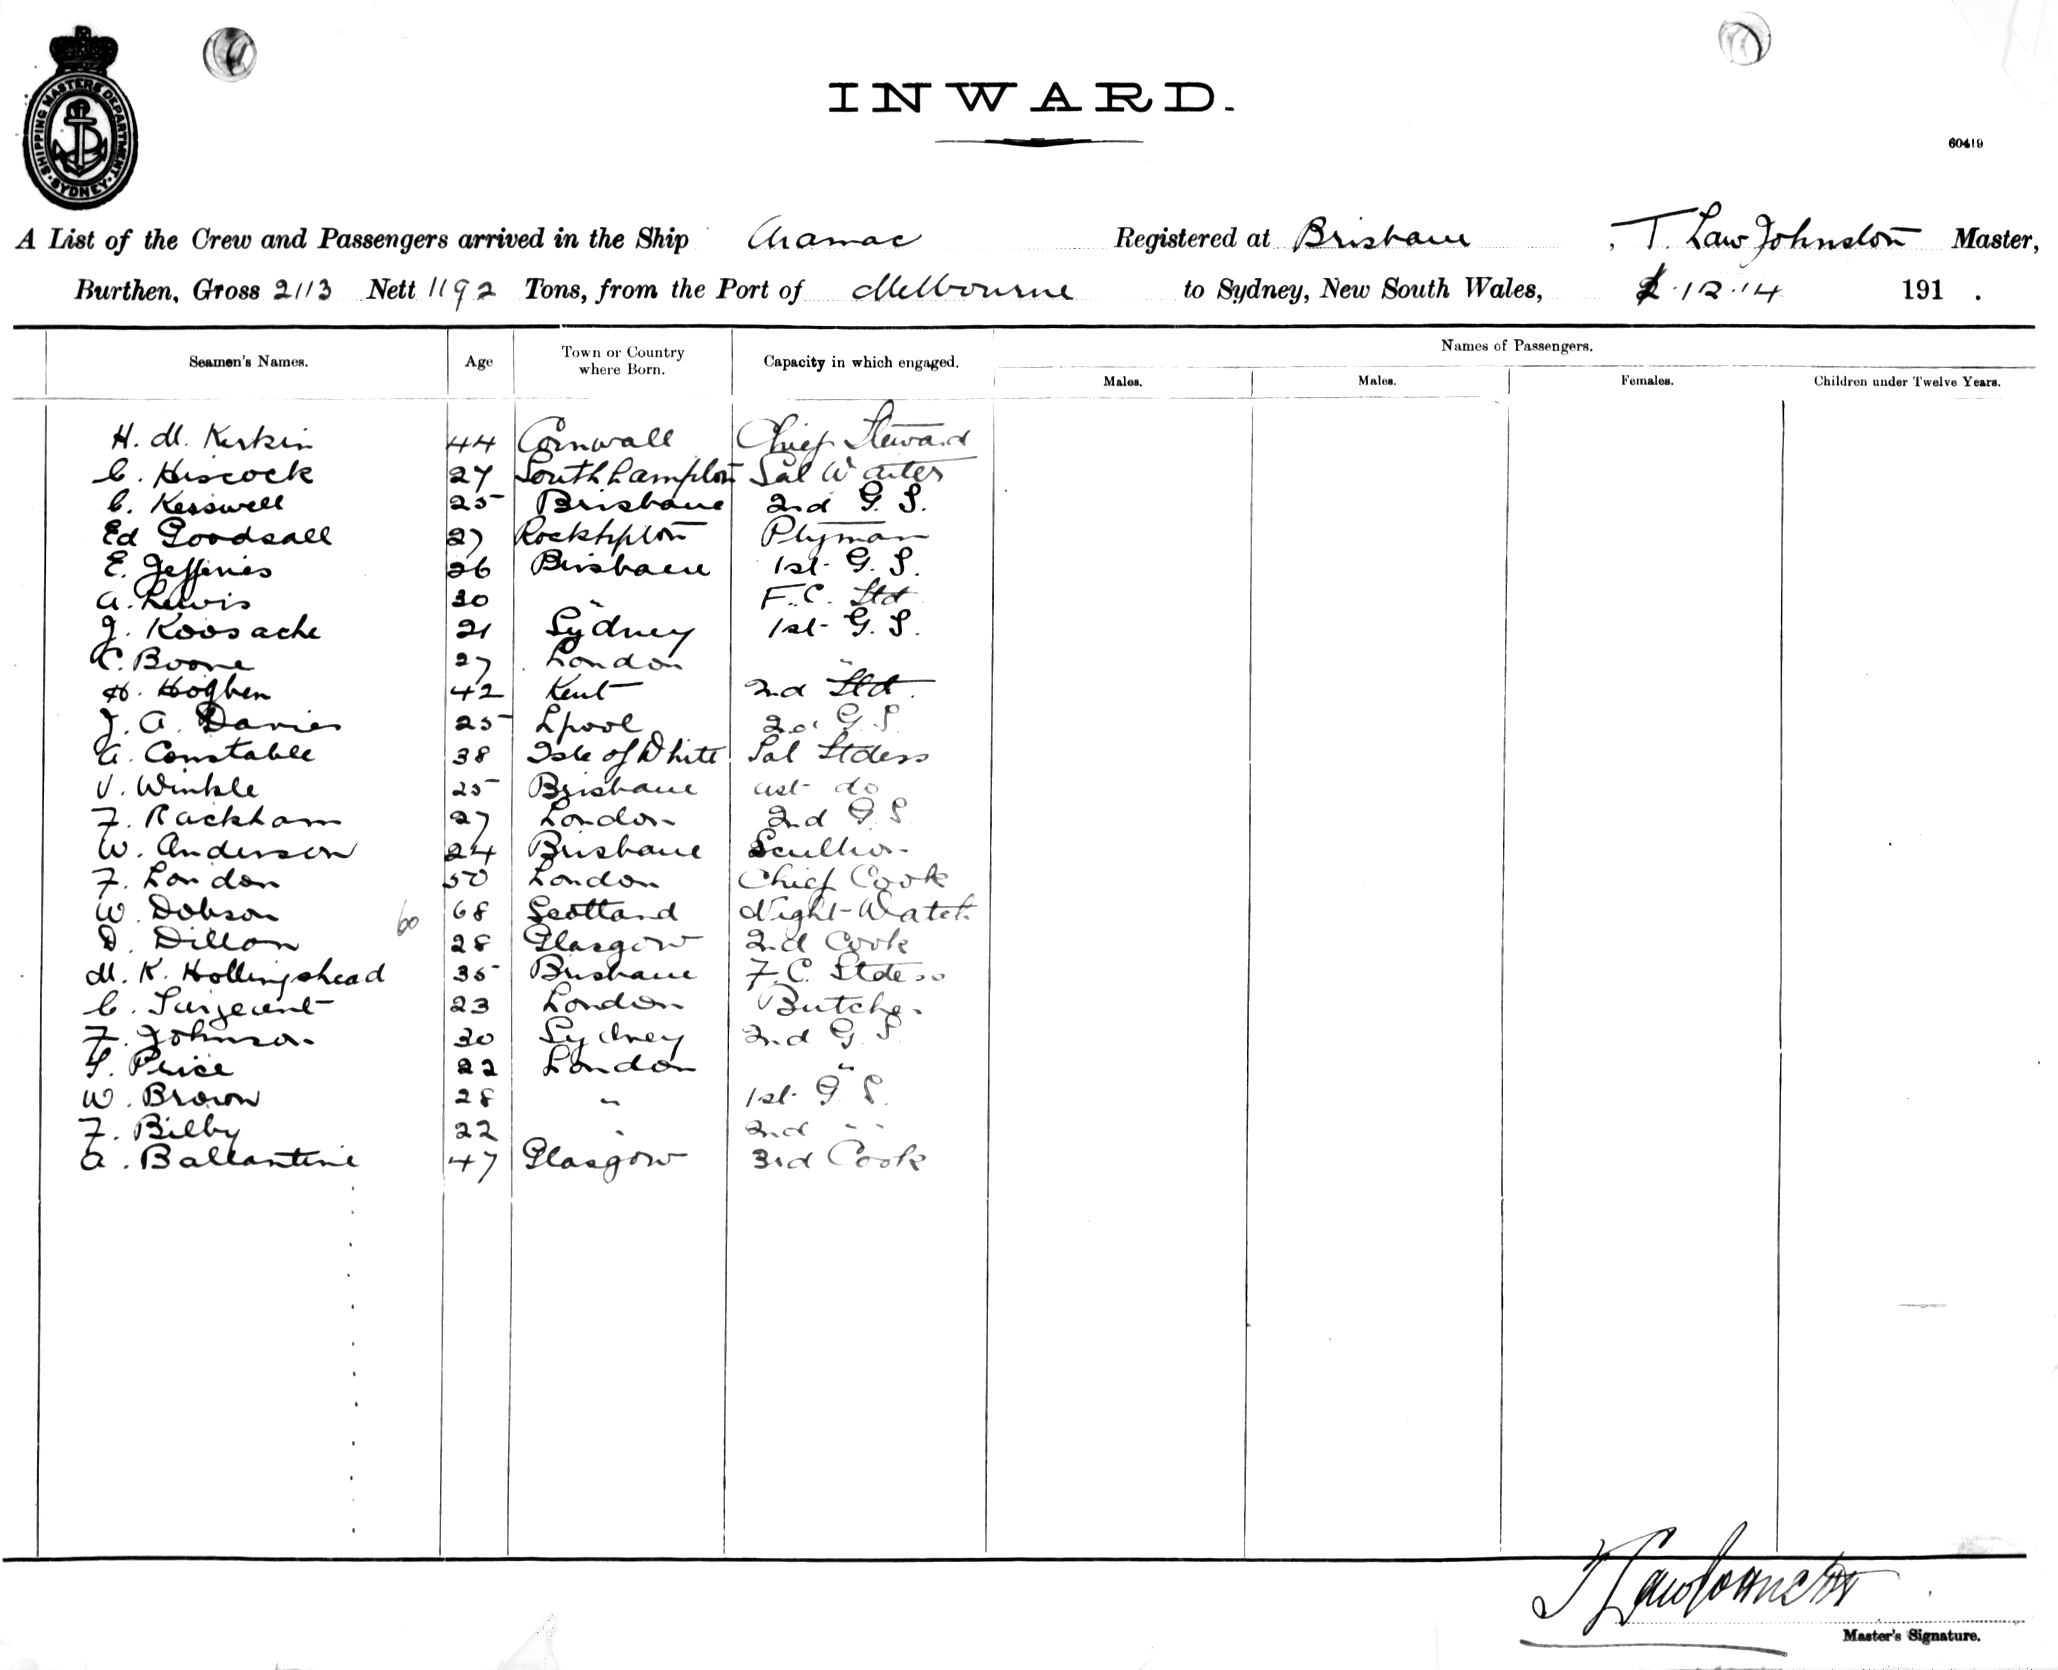 SHIPPING MASTERS DEPARTMENT
SYDNEY
INWARD.
60419
A List of the Crew and Passengers arrived in the Ship Aramac Registered at Brisbane, T. Law Johnston Master,
Burthen, Gross 2113 Nett 1192 Tons, from the Port of Melbourne to Sydney, New South Wales, 2.12.14 191 .
Names of Passengers.
Seamen's Names. Age Town or Country where Born. Capacity in which engaged. Males. Males. Females. Children under Twelve Years.
H. M. Kirkin 44 Cornwall Chief Steward
C. Hiscock 27 Southhampton Sal Waiter
C. Kesswell 25 Brisbane 2nd G. S.
Ed Goodsall 27 Rockhpton Plyman
E. Jefferies 26 Brisbane 1st G. S.
A. Lewis 30 " F.C. Std
J. Koosache 21 Sydney 1st G. S.
C. Boone 27 London "
H. Hogben 42 Kent 2nd Std.
J. A. Davies 25 Lpool 2nd G.S.
A. Constable 38 Isle of White Sal Stdess
V. Winkle 25 Brisbane ast do
F. Rackham 27 London 2nd G S
W. Anderson 24 Brisbane Scullion
F. London 50 London Chief Cook
W. Dobson 60 68 Scotland Night-Watch
D. Dillon 28 Glasgow 2nd Cook
M. K. Hollingshead 35 Brisbane F.C. Stdess
C. Sargeant 23 London Butcher
F. Johnson 30 Sydney 2nd G S
S. Price 22 London "
W. Brown 28 " 1st G S.
F. Bilby 22 " 2nd " "
A. Ballantine 47 Glasgow 3rd Cook
T Law Johnston
Master's Signature.